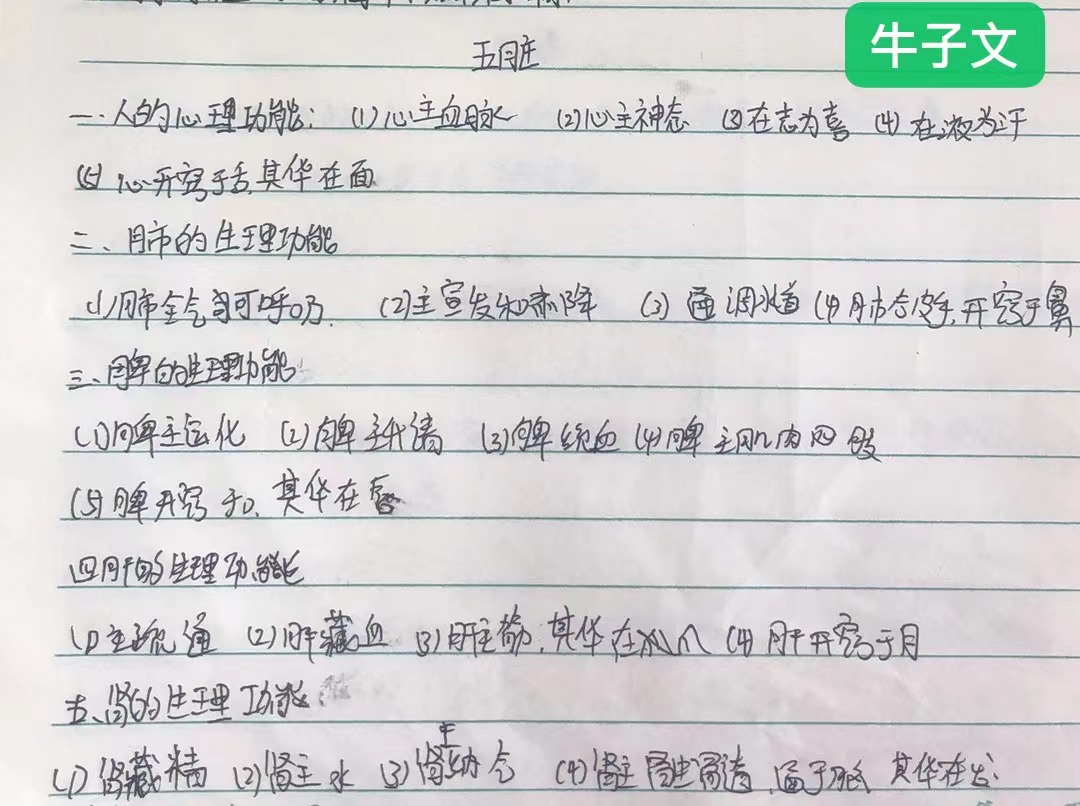 牛子文
五脏
一.人的心理功能: (1)心主血脉 (2)心主神态 (3)在志为喜 (4)在液为汗
(5)心开窍于舌,其华在面
二、肺的生理功能
(1)肺全气司呼吸 (2)主宣发和肃降 (3)通调水道 (4)肺合皮毛,开窍于鼻
三、脾的生理功能
(1)脾主运化 (2)脾主升清 (3)脾统血 (4)脾主肌肉四肢
(5)脾开窍于口、其华在唇
四肝的生理功能
(1)主疏通 (2)肝藏血 (3)肝主筋,其华在爪 (4)肝开窍于目
五、肾的生理功能
主
(1)肾藏精 (2)肾主水 (3)肾纳气 (4)肾主骨生骨 其华在发